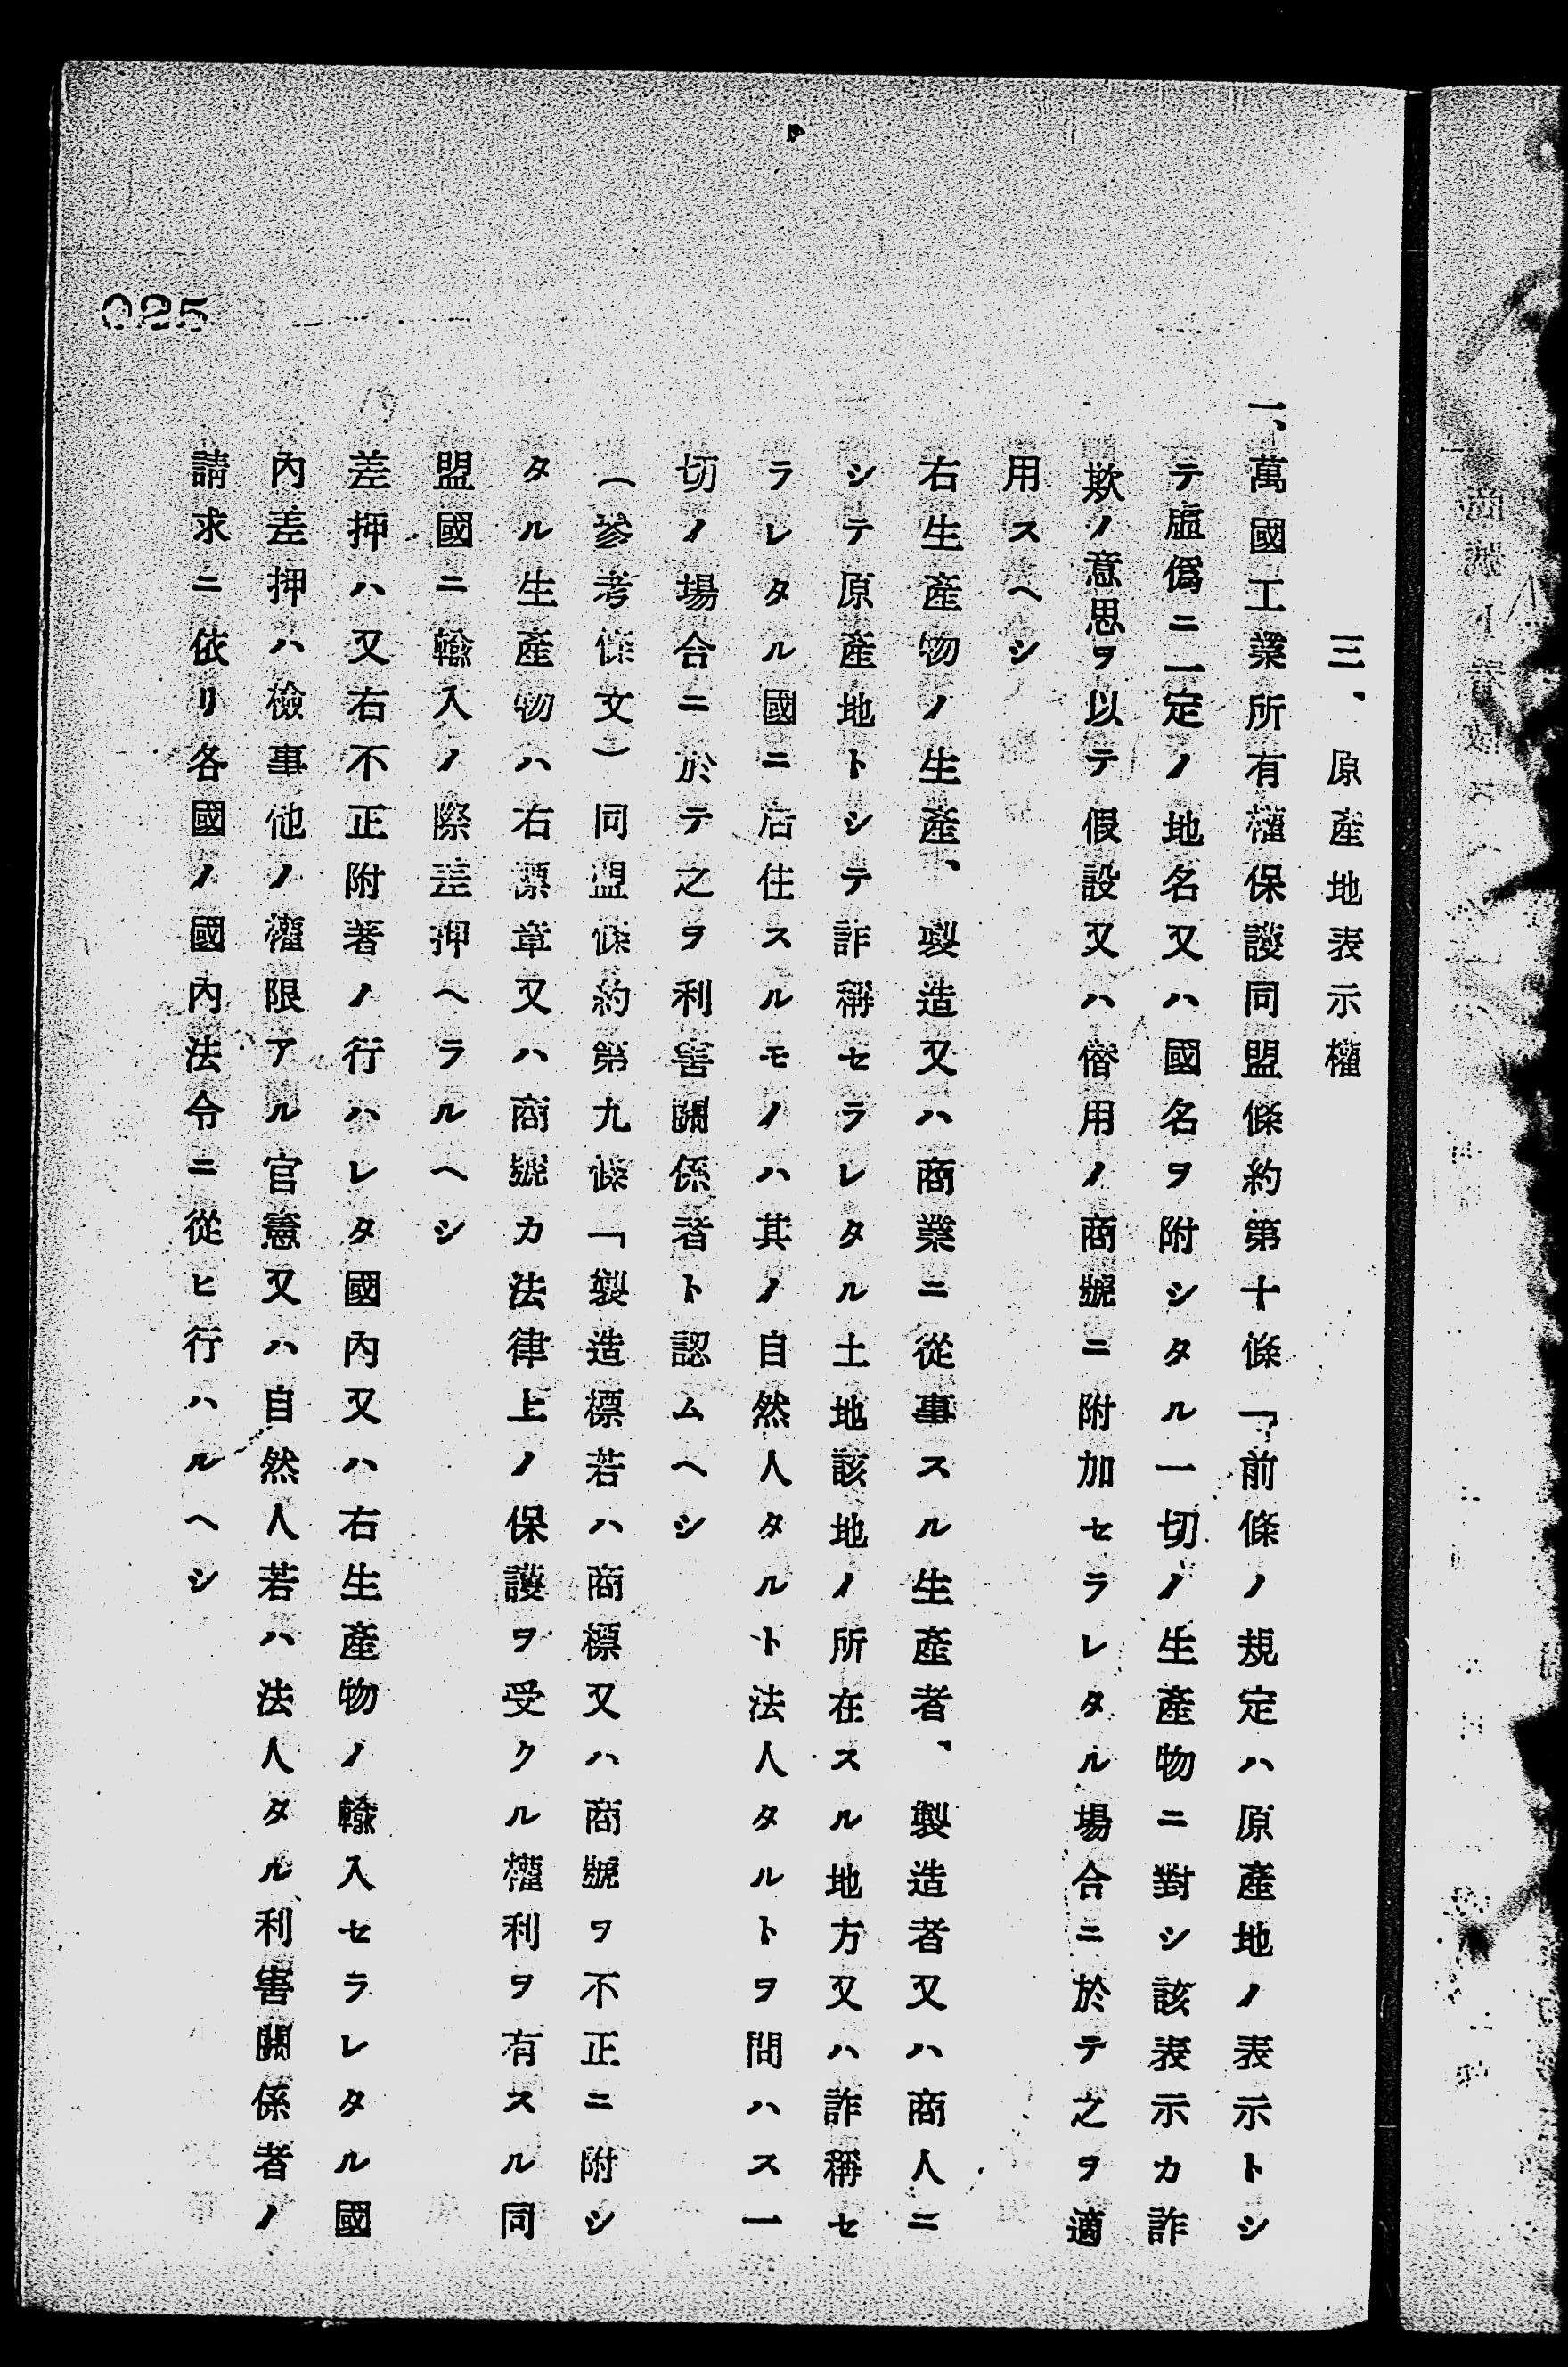 三、原產地表示權
一、萬國工業所有權保護同盟條約第十條「前條ノ規定ハ原產地ノ表示トシ
テ虛僞ニ一定ノ地名又ハ國名ヲ附シタル一切ノ生產物ニ對シ該表示カ詐
欺ノ意思ヲ以テ假設又ハ僭用ノ商號ニ附加セラレタル場合ニ於テ之ヲ適
用スヘシ
右生產物ノ生產、製造又ハ商業ニ從事スル生產者、製造者又ハ商人ニ
シテ原產地トシテ詐稱セラレタル土地該地ノ所在スル地方又ハ詐稱セ
ラレタル國ニ居住スルモノハ其ノ自然人タルト法人タルトヲ問ハス一
切ノ場合ニ於テ之ヲ利害關係者ト認ムヘシ
(參考條文)同盟條約第九條「製造標若ハ商標又ハ商號ヲ不正ニ附シ
タル生產物ハ右標章又ハ商號カ法律上ノ保護ヲ受クル權利ヲ有スル同
盟國ニ輸入ノ際差押ヘラルヘシ
差押ハ又右不正附著ノ行ハレタ國內又ハ右生產物ノ輸入セラレタル國
內差押ハ檢事他ノ權限アル官憲又ハ自然人若ハ法人タル利害關係者ノ
請求ニ依リ各國ノ國內法令ニ從ヒ行ハルヘシ
025